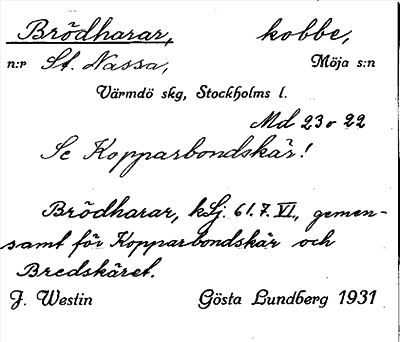 Brödharar, kobbe,
n:r St. Nassa, Möja s:n
Värmdö skg, Stockholms l.
Md 23 o 22
Se Kopparbondskär!
Brödharar, kSj. 61.7.VI., gemen-
samt för Kopparbondskär och
Bredskäret.
J. Westin Gösta Lundberg 1931